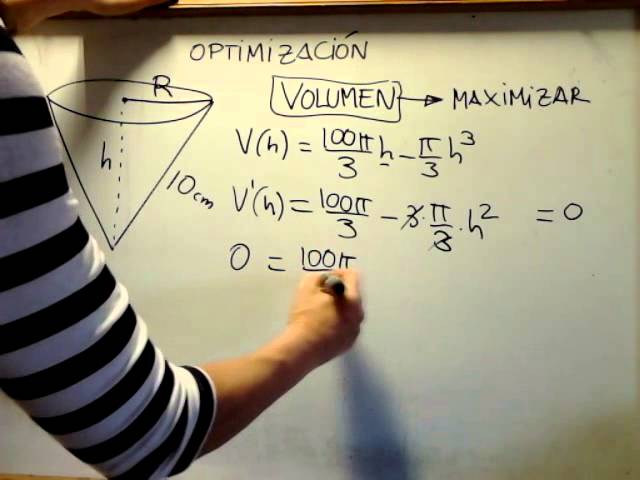 OPTIMIZACIÓN
VOLUMEN → MAXIMIZAR
R
h
10cm
V(h) = 100π/3 h - π/3 h³
V'(h) = 100π/3 - 3·π/3·h² = 0
0 = 100π